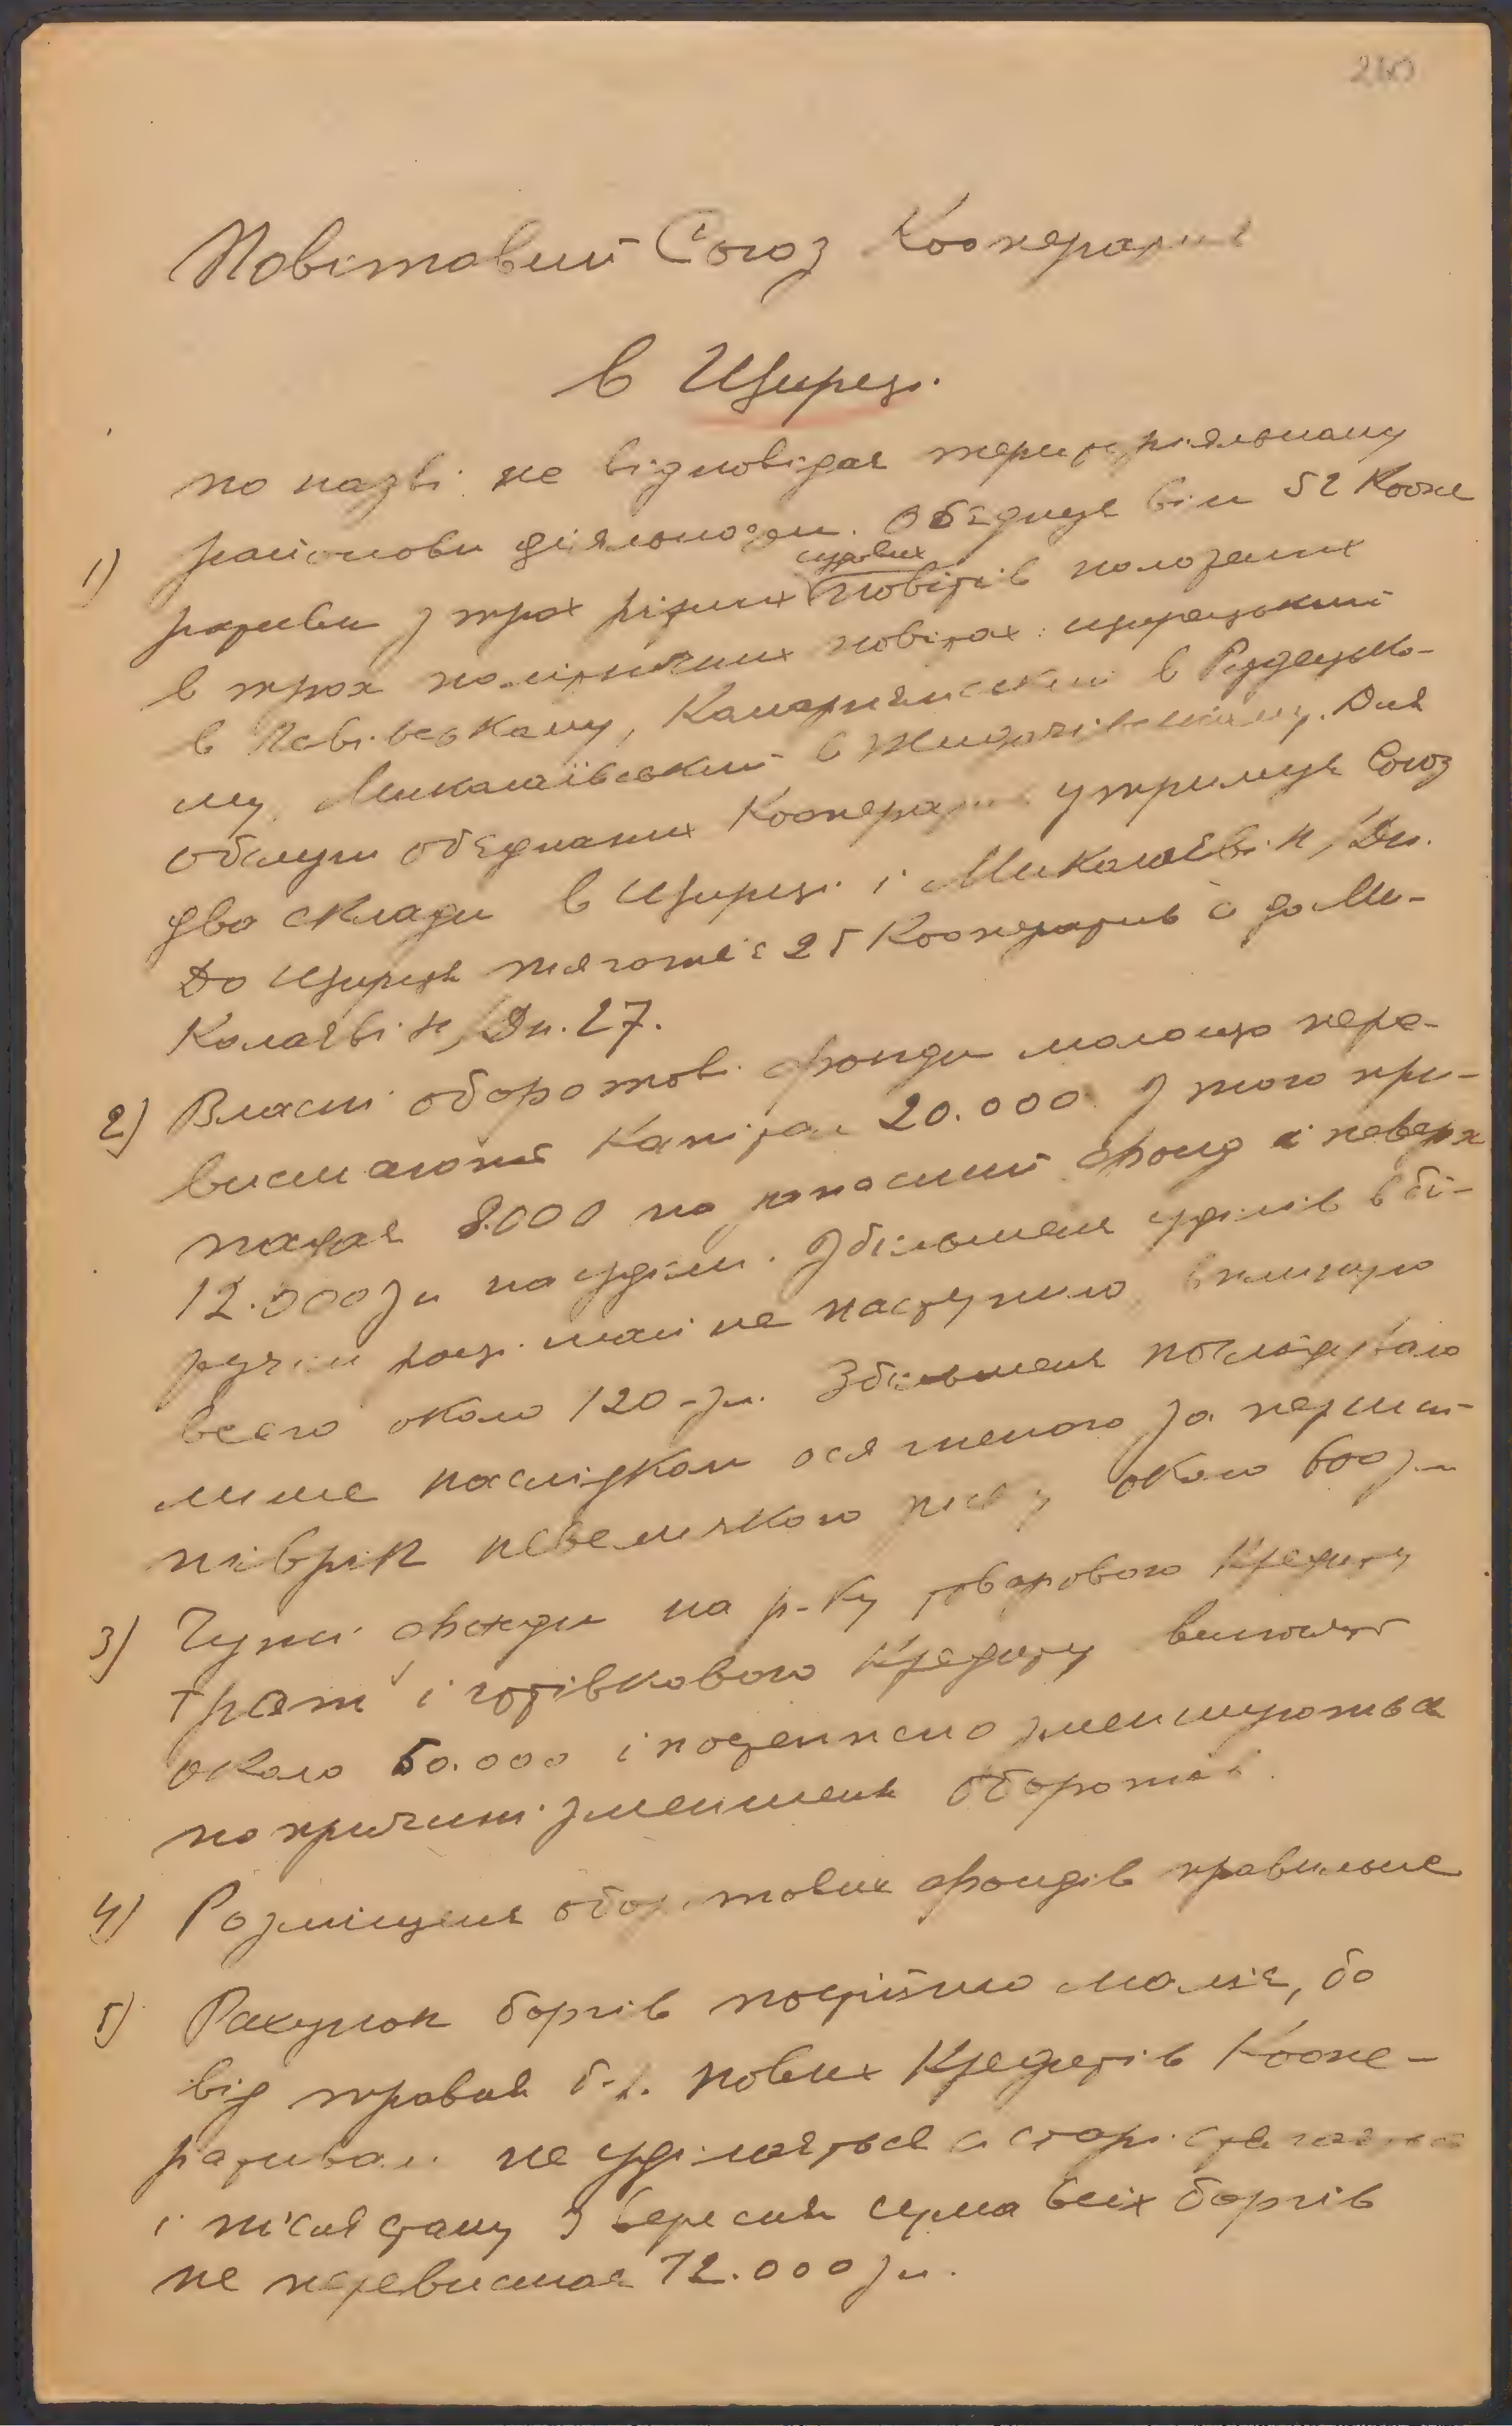 260
Повітовий Союз Кооператив
в Щирці.
по назві не відповідає територіяльному
1) районови діяльности. Обєднує він 52 Коопе
судових
ративи з трох ріжних повітів положених
в трох політичних повітах: щирецький
в Львівському, Комарнянський в Рудецько-
му, Миколаївський в Жидачівському. Для
обслуги обєднаних Кооператив утримує Союз
два склади в Щирці і Миколаєві н/Дн.
До Щирця тяготіє 25 Кооператив а до Ми-
колаєві н/Дн. 27.
2) Власні оборотові фонди малощо пере-
висшають капітал 20.000 з того при-
падає 8.000 на запасний фонд і поверх
12.000 зл на уділи. Збільшеня уділів в бі-
жучім році майже не наступило, вплинуло
всего около 120 - зл. Збільшеня послідувало
лише наслідком осягненого за перше
півріч невеликого около 600 зл
3) Чужі фонди на р-ку товарового кредиту
трат і готівкового кредиту виносять
около 50.000 і поденно зменшуються
по причині зменшеня оборотів.
4) Розміщеня оборотових фондів правильне
5) Рахунок боргів постійно маліє, бо
від травня б.р. нових Кредитів Коопе-
ративам не уділяється а старі стягаються
і після стану з вересня сума всіх боргів
не перевисшає 12.000 зл.